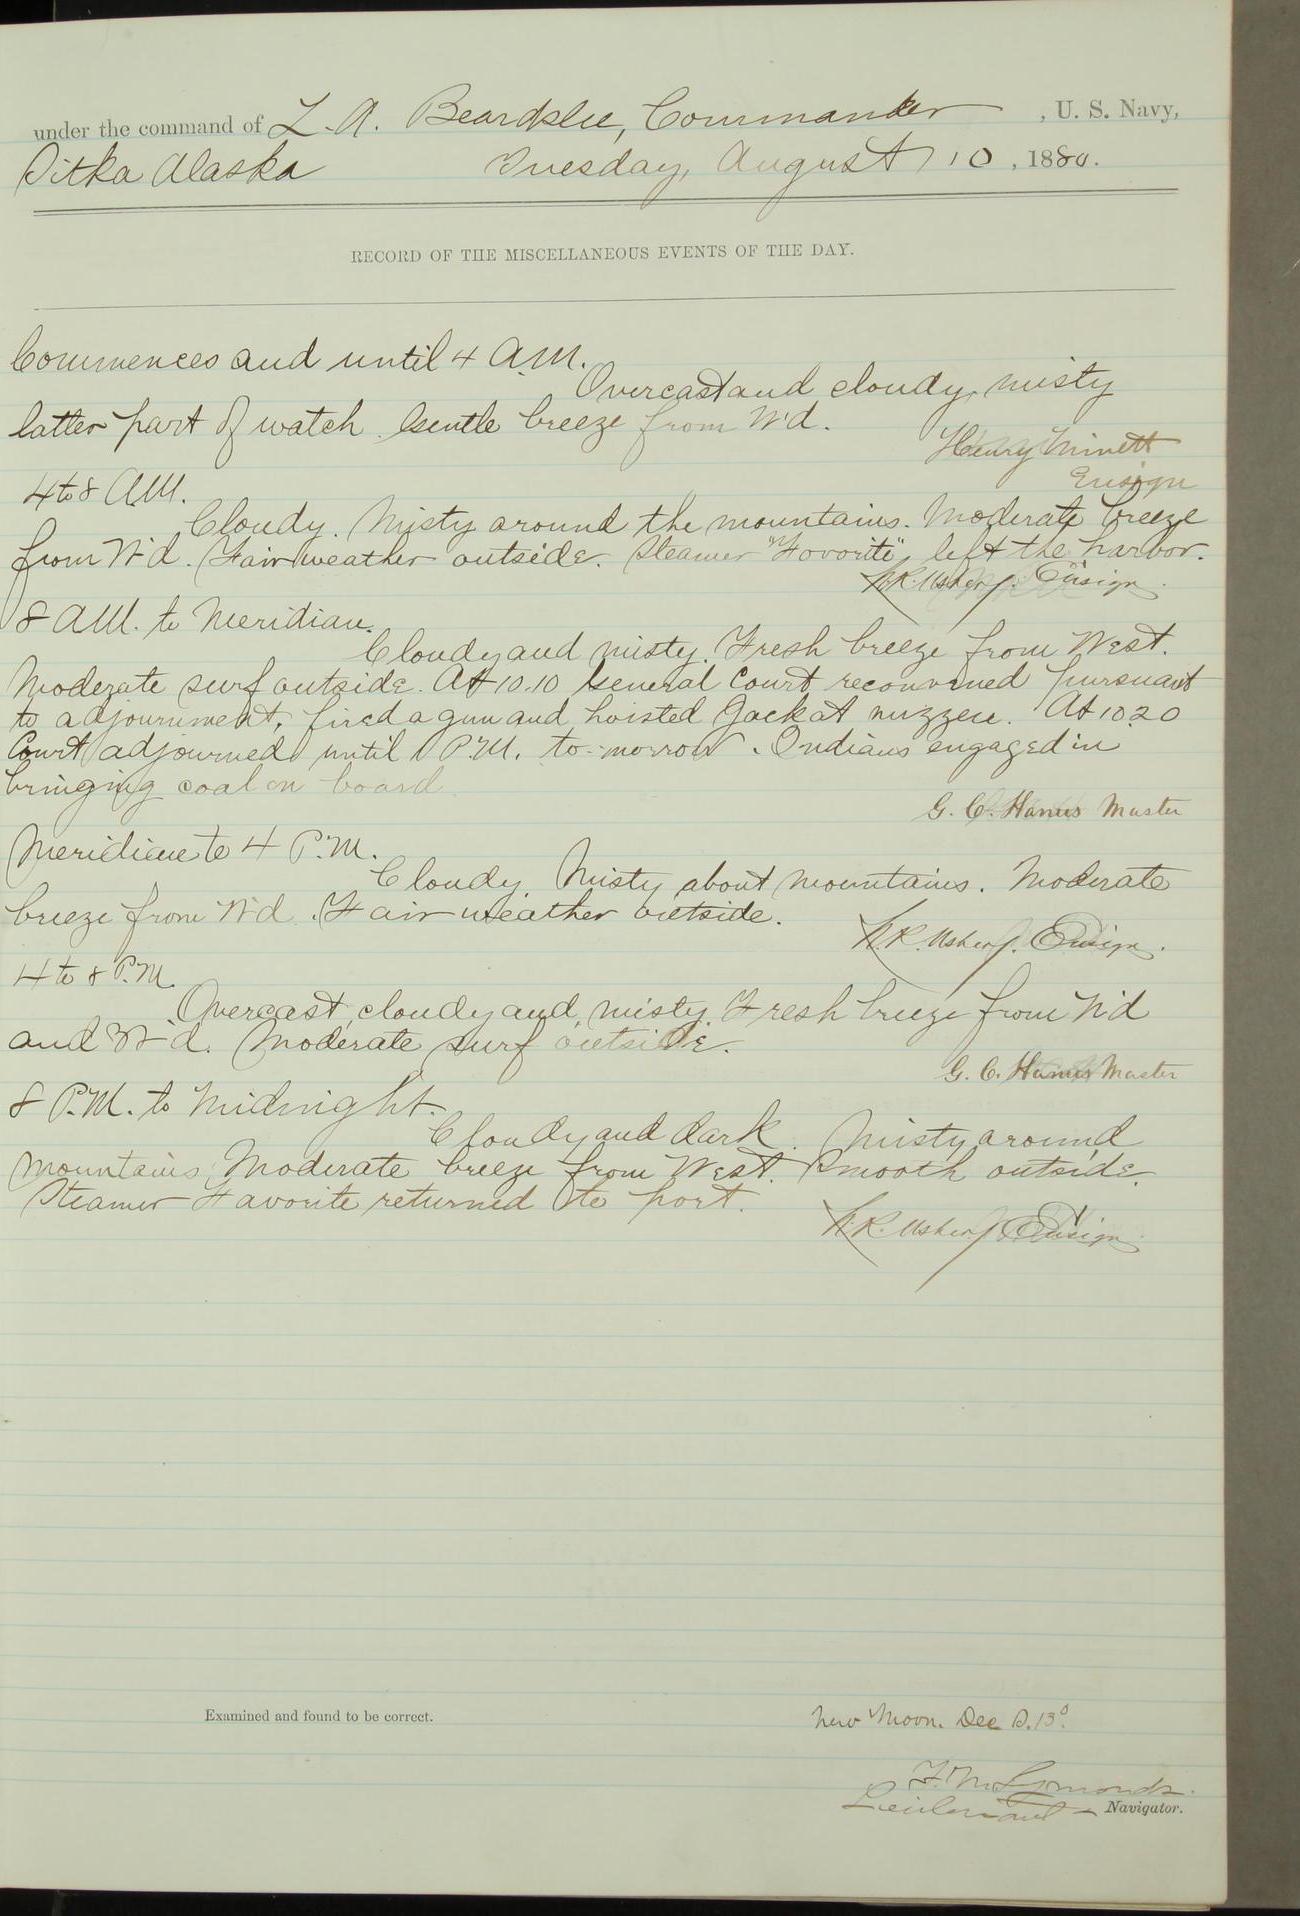 under the command of L. A. Beardslee, Commander, U. S. Navy,
Sitka Alaska Tuesday, August 10, 1880.
RECORD OF THE MISCELLANEOUS EVENTS OF THE DAY.
Commences and until 4 A.M.
Overcast and cloudy, misty
latter part of watch. Gentle breeze from W'd.
Henry Minett
Ensign
4 to 8 A.M.
Cloudy. Misty around the mountains. Moderate breeze
from W'd. Fair weather outside. Steamer "Favorite" left the harbor.
N.R. Usher, Ensign.
8 A.M. to Meridian.
Cloudy and misty. Fresh breeze from West.
Moderate surf outside. At 10.10 General Court reconvened pursuant
to adjournment, fired a gun and hoisted Jack at mizzen. At 10.20
Court adjourned until 1 P.M. to-morrow. Indians engaged in
bringing coal on board.
G. C. Hanus Master
Meridian to 4 P.M.
Cloudy. Misty about mountains. Moderate
breeze from W'd. Fair weather outside.
N.R. Usher, Ensign.
4 to 8 P.M.
Overcast, cloudy and misty. Fresh breeze from N'd
and W'd. Moderate surf outside.
G. C. Hanus Master
8 P.M. to Midnight.
Cloudy and dark. Misty around
mountains. Moderate breeze from West. Smooth outside.
Steamer Favorite returned to port.
N.R. Usher, Ensign
Examined and found to be correct.
New Moon. Dec S. 13°.
F. M. Symonds.
Lieutenant Navigator.